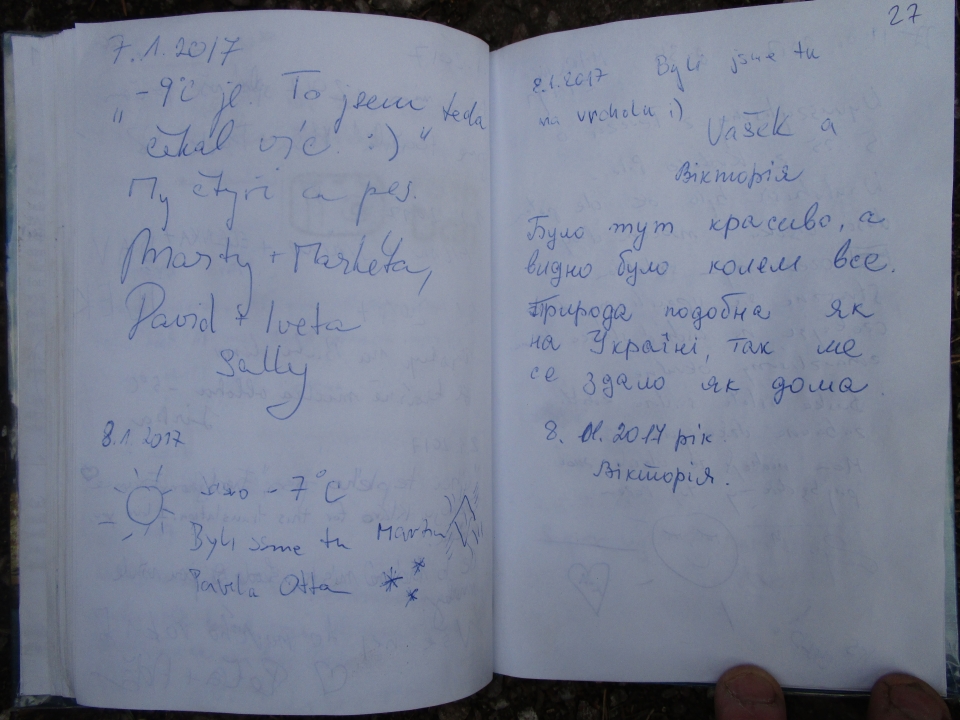 7.1.2017
„-9°C je. To jsem teda
čekal víc. :)“
My čtyři a pes.
Marty + Markéta,
David + Iveta
Sally
8.1.2017
-7°C
Byli jsme tu Martin
Pavla Otta
27
8.1.2017 Byli jsme tu
na vrcholu :)
Vašek a
Вікторія
Було тут красиво, а
видно було колем все.
Природа подобна як
на Україні, так ме
се здало як дома
8. 01. 2017 рік
Вікторія.